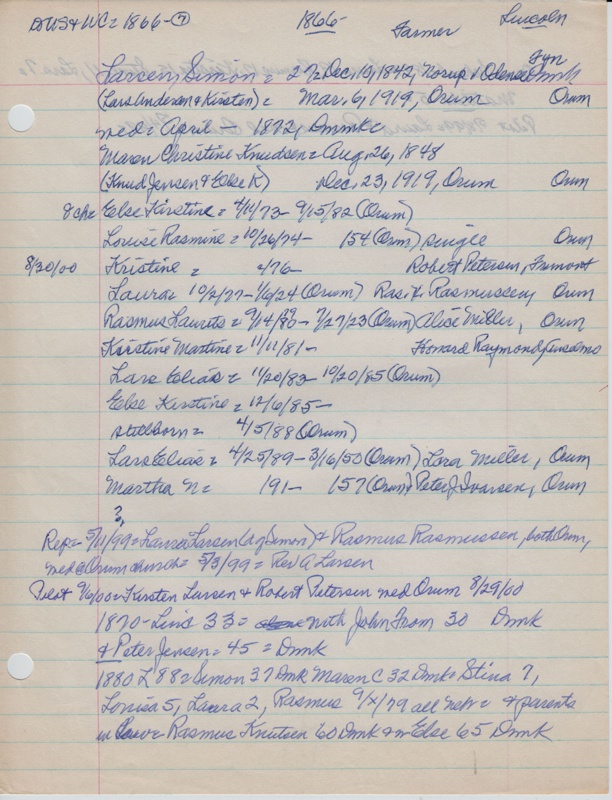 DWS & WC = 1866-⑦ 1866- Farmer Lincoln
Larsen, Simon = 2 Dec. 10, 1842, Norup + Odense Fyn Dmrk
(Lars Andersen & Kirsten) = Mar. 6, 1919, Orum Orum
med = April - 1872, Dmmk
Maren Christine Knudsen = Aug. 26, 1848
(Knud Jensen & Else K) Dec. 23, 1919, Orum Orum
8 ch = Else Kirstine = 4/11/73 - 9/15/82 (Orum)
Louise Rasmine = 10/26/74 - 154 (Orm) single Orum
8/30/00 Kristine = 2/76 - Robert Petersen, Fremont
Laura = 10/2/77 - 1/6/24 (Orum) Ras. K. Rasmussen, Orum
Rasmus Laurets = 9/14/80 - 7/27/23 (Orum) Alise Miller, Orum
Kirstine Martine = 11/11/81 - Howard Raymond, Anselmo
Lars Elias = 11/20/83 - 10/20/85 (Orum)
Else Kirstine = 12/6/85 -
stillborn = 4/5/88 (Orum)
Lars Elias = 4/25/89 - 3/16/50 (Orum) Lora Miller, Orum
Martha N = 191 - 157 (Orum) Peter J Ivarsen, Orum
?,
Rep = 5/11/99 = Laura Larsen (d of Simon) & Rasmus Rasmussen, both Orum,
med @ Orum church = 5/3/99 = Rev A Larsen
Pilot 9/6/00 = Kirsten Larsen & Robert Petersen med Orum 8/29/00
1870 - Lins 33 = with John From 30 Dmk
& Peter Jensen = 45 = Dmrk
1880 L 88 = Simon 37 Dmk Maren C 32 Dmk = Stina 7,
Louisa 5, Laura 2, Rasmus 9/x/79 all neb = & parents
in = Rasmus Knutsen 60 Dmk & Else 65 Dmrk